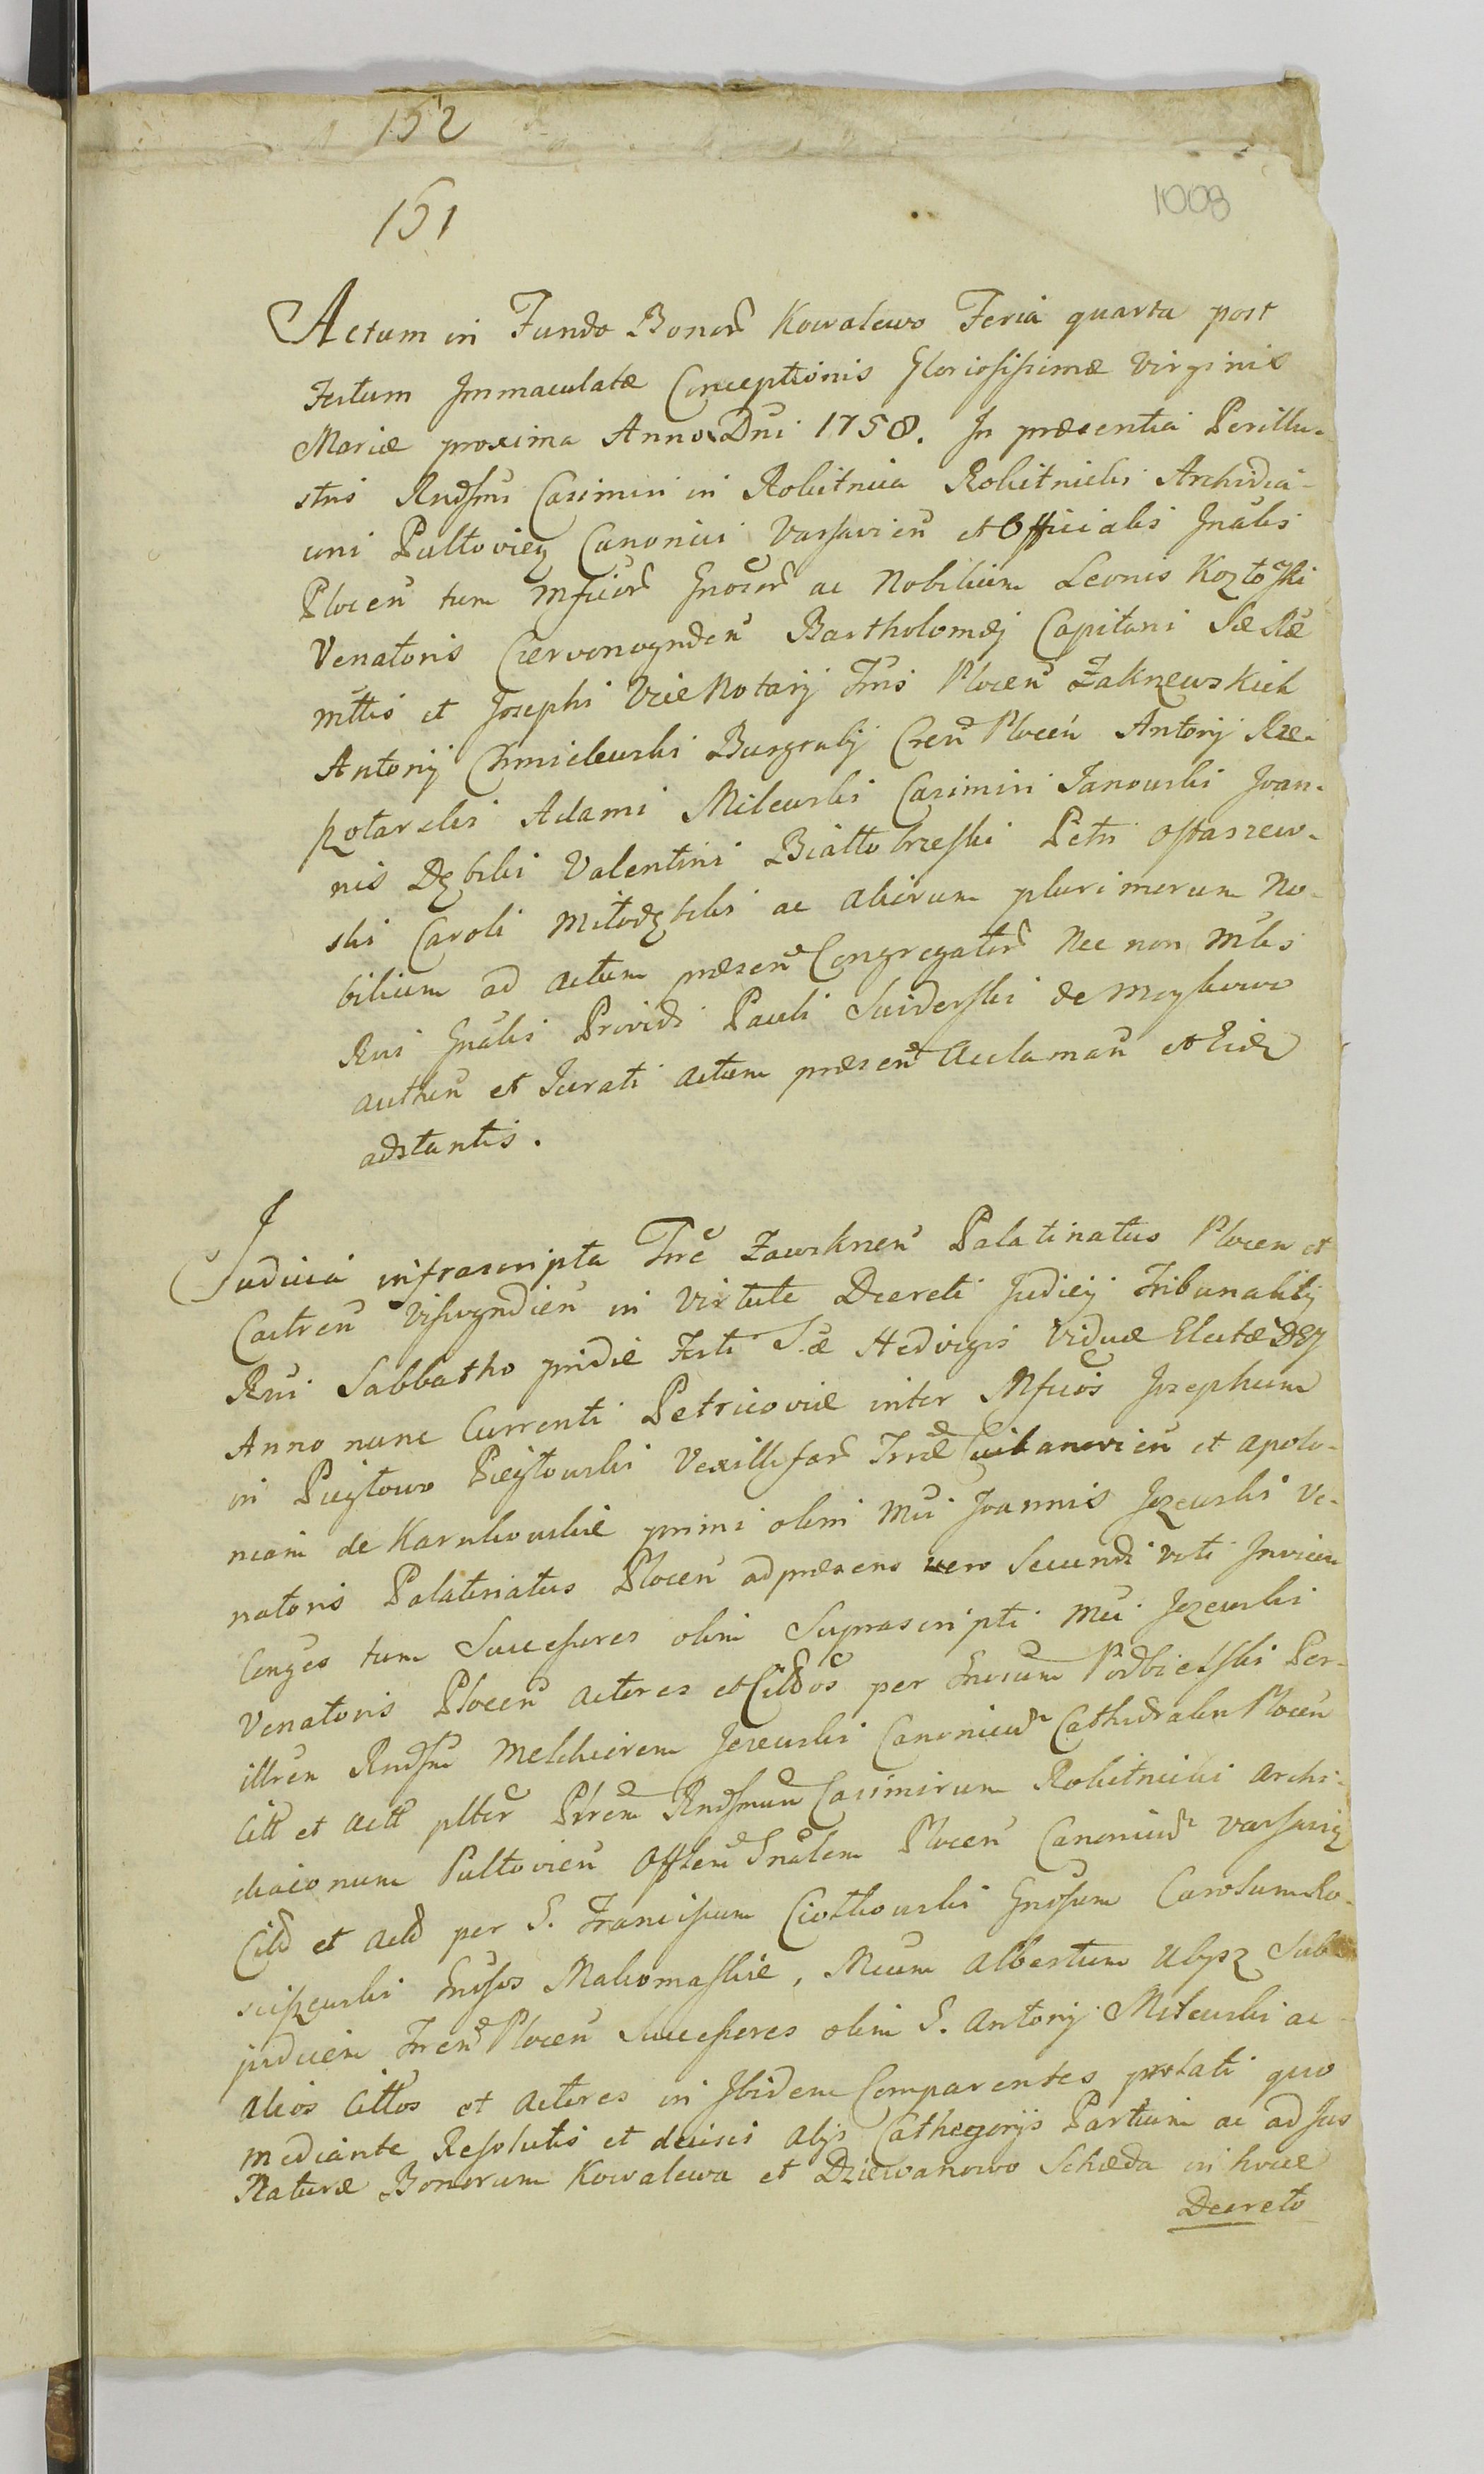 152
1008
151
Actum in Fundo Bonor̃ Kowalewo Feria quarta post
Festum Immaculatæ Conceptionis Gloriosissimæ Virginis
Mariæ proxima Anno Dni 1758. In præsentia Perillu-
stris Rndssmi Casimiri in Rokitnica Rokitnicki Archidia-
coni Pultovien Canonici Varsavien et Officialis Gnalis
Plocen tum Mficor̃ Gnosor̃ ac Nobilium Leonis Kozłoski
Venatoris Czervonogroden Bartholomæj Capitani Sæ Ræ
Mttis et Josephi ViceNotarij Trris Plocen Zakrzewskich
Antonij Chmielewski Burgrabij Cren Plocen Antonij Rze-
szotarski Adami Milewski Casimiri Janowski Joan-
nis Dębski Valentini Białłobrzeski Petri Ostaszew-
ski Caroli Miłodzbski ac aliorum plurimorum No-
bilium ad actum præsen Congregator̃ Nec non Mlis
Rni Gnalis Providi Pauli Swiderski de
authen et Jurati actum præsen acclaman et Eidẽ
adstantis.
Judicia infrascripta Trræ Zawskrzen Palatinatus Plocen et
Castren Viszogrodien in Virtute Decreti Judicij Tribunalitij
Rni Sabbatho pridie Festi S. æ Hedvigis Viduæ Electæ DEJ
Anno nunc Currenti Petricoviæ inter Mficos Josephum
in Pięgłowo Pięgłowski Vexilliferũ Trræ Ciechanovien et Apolo-
niam de Karnkowskie primi olim Mci Joannis Jezewski Ve-
natoris Palatinatus Plocen ad præsens vero Secundi voti Invicem
Conges tum Successores olim Suprascripti Mci Jezewski
Venatoris Plocen actores et Citt̃os per Gnosum Podbielski Per-
illrem Rndssm Melchiorem Jezewski Canonicum Cathedralem Plocen
Citt et actt plter Pllrem Rndssmum Casimirum Rokitnicki archi-
diaconum Pultovien Offlem Gnalem Plocen Canonicum Varsavien
Citt et actt per G. Franciscum Ciotkowski Gnosum Carolum Ro-
sciszewski Gnosos Makomaskie, Mcum Albertum Ubysz Sub-
judicem Trren Plocen Successores olim G. Antonij Milewski ac
alios Cittos et actores in Ibidem Comparentes prolati quo
mediante Resolutis et decisis alijs Cathegorijs Partium ac ad Jus
Naturæ Bonorum Kowalewa et Dziewanowo Scheda in hocce
Decreto